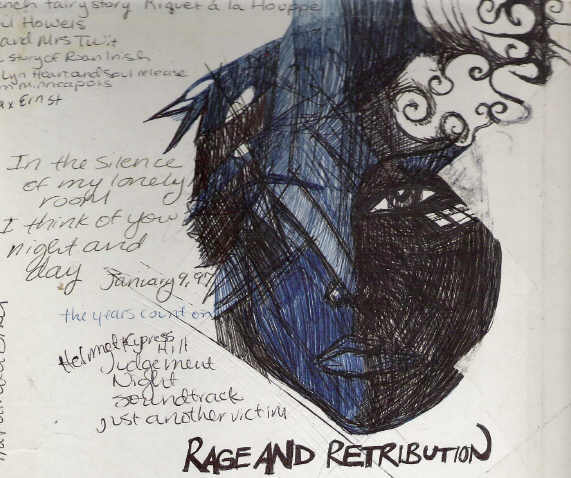 ench fairy story Riquet à la Houppe
Howels
and Mrs Twit
story of Roan Inish
Lyn Heart and soul release
Minneapolis
ax Ernst
In the silence
of my lonely
room
I think of you
night and
day
January 9, 97
the years count on
Helmet Kypress
Hill
Judgement
Night
soundtrack
just another victim
RAGE AND RETRIBUTION